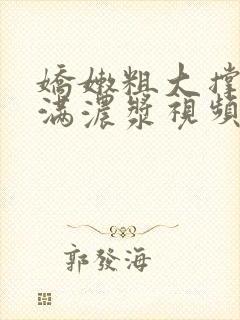 嬌嫩粗大撐
滿濃漿視頻
郭發海